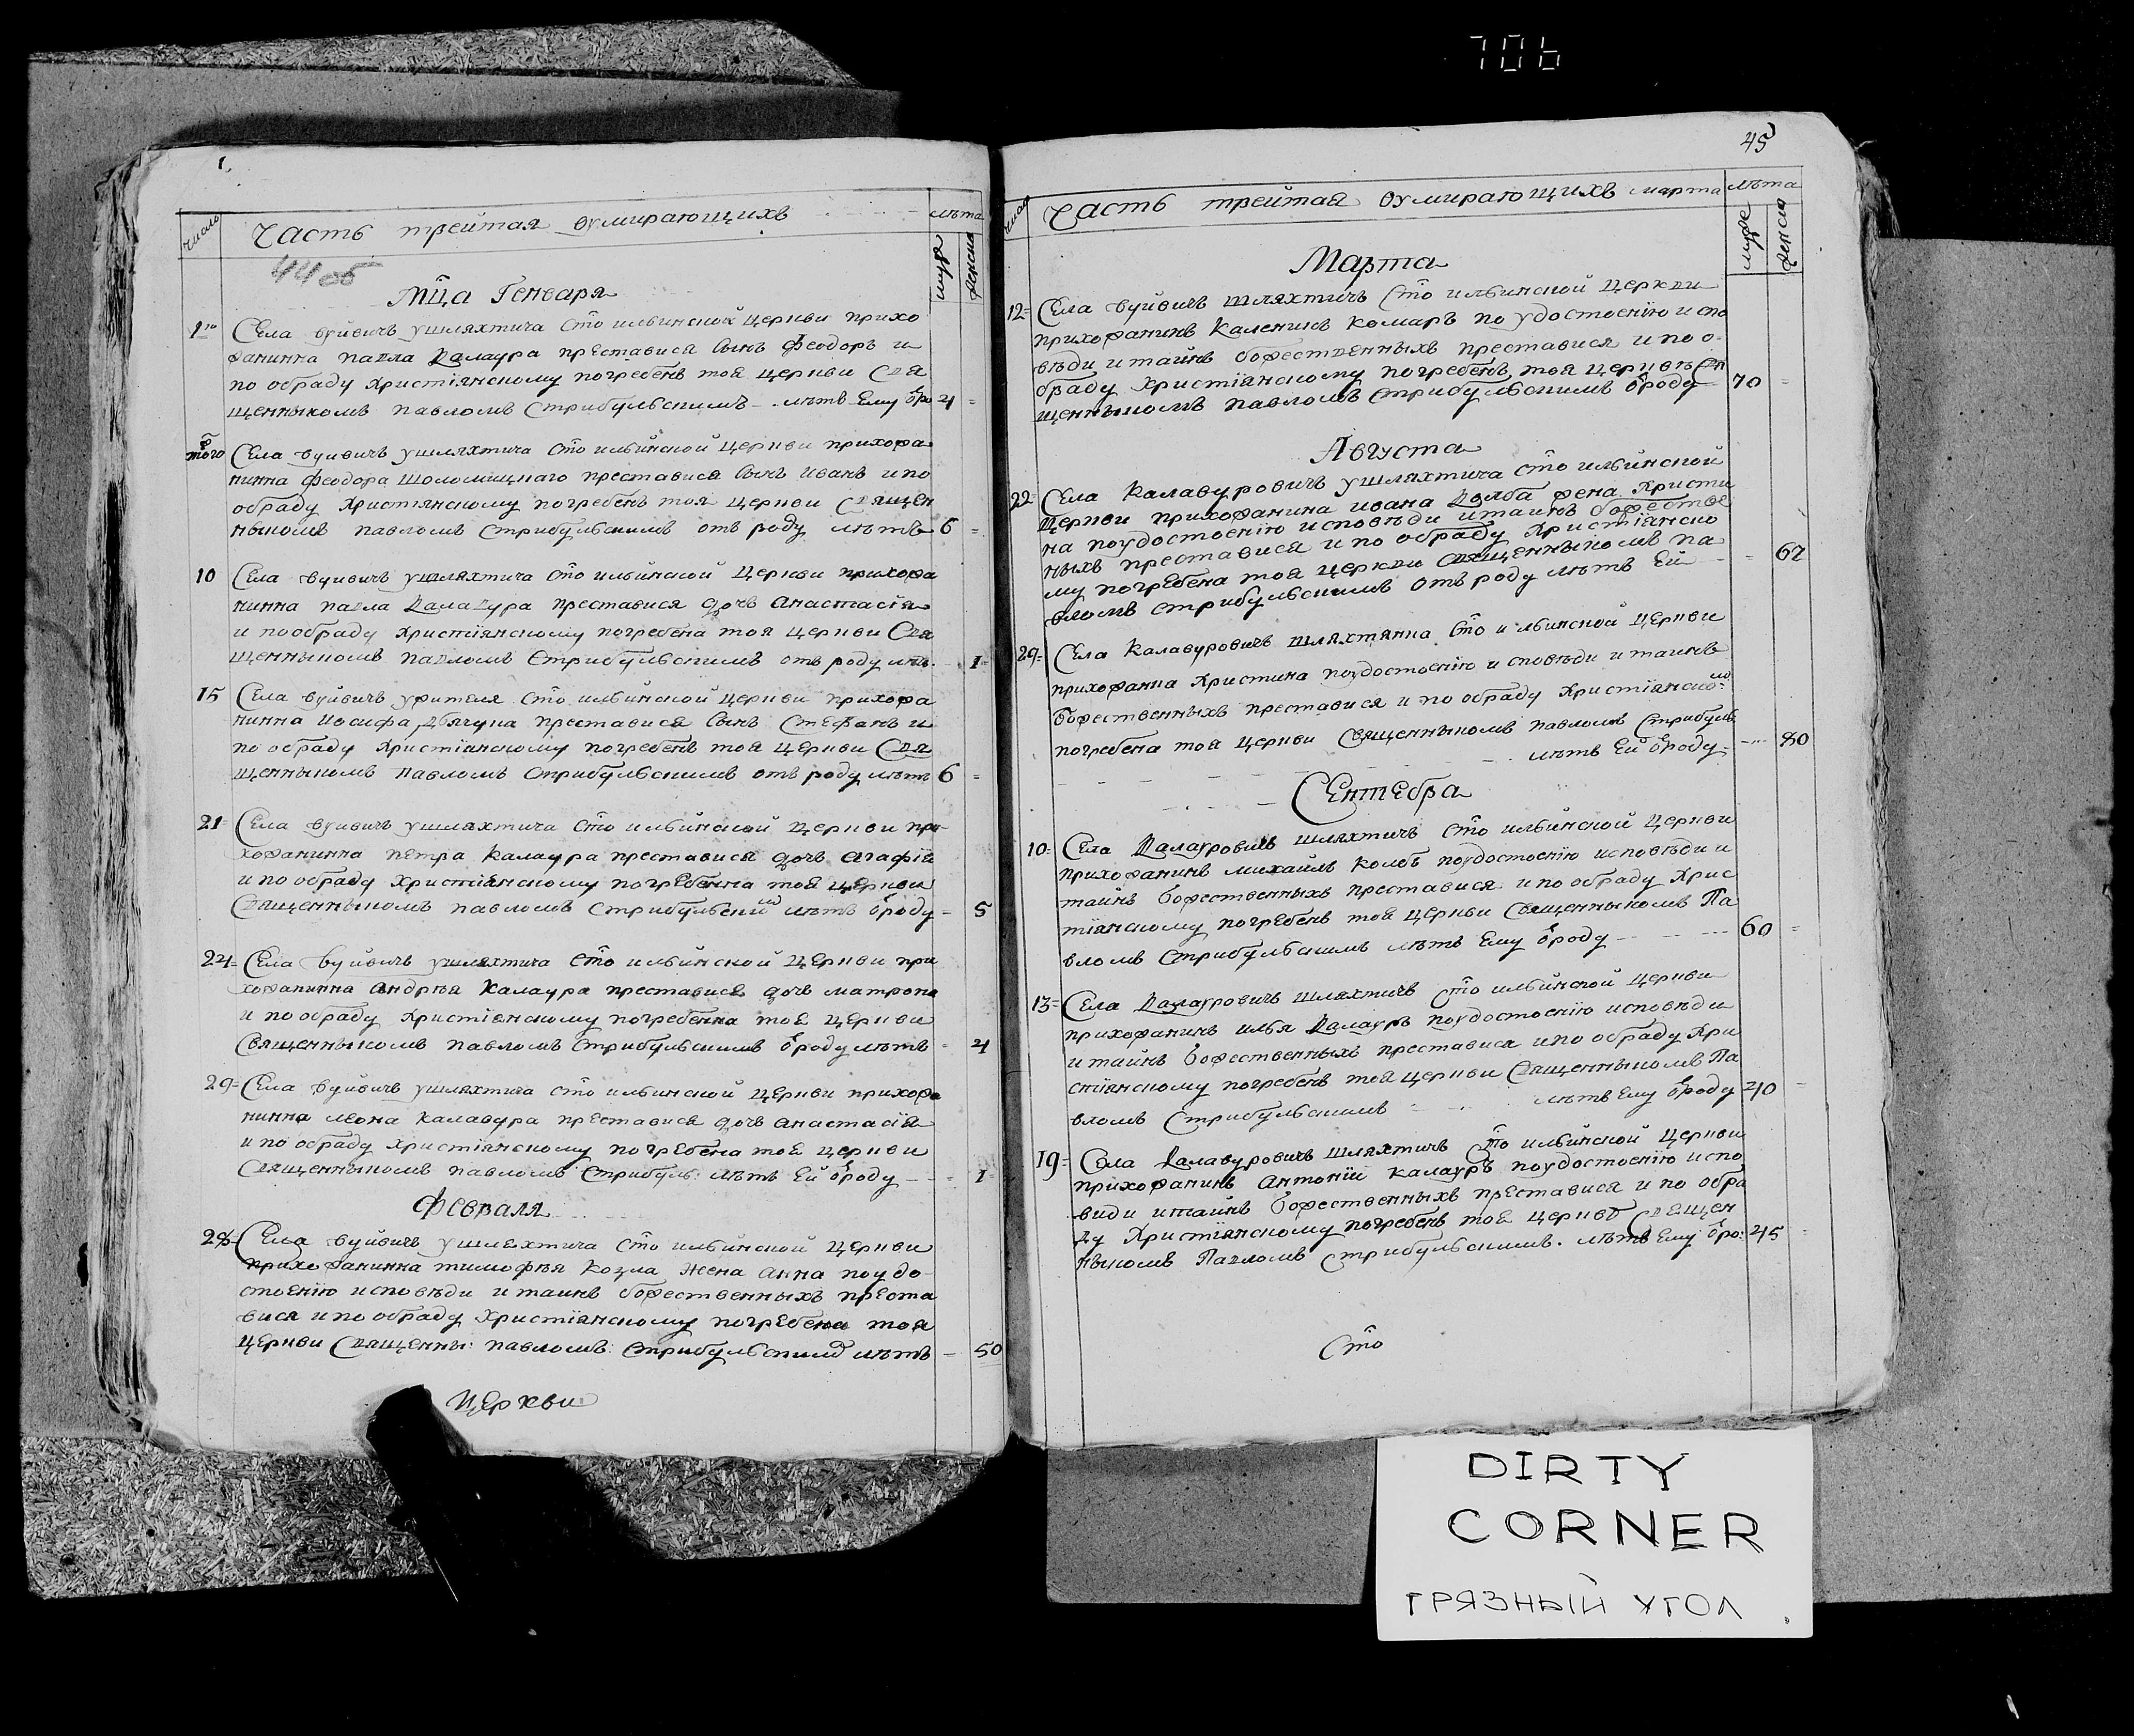 706
число
Часть трейтая оумирающихъ
лѣта
муже
женско
44 об
Мца Генваря
1го
Села Вуйвичъ у шляхтича Сто ильинской церкви прихо
жанинна Павла Калаура преставися Сынъ Феодоръ и
по обраду христіянскому погребенъ тоя церкви Свя
щенныкомъ Павломъ Стрибульскимъ лѣтъ Ему ѿро 4
того
Села Вуйвичъ у шляхтича Сто ильинской церкви прихожа
нинна Феодора Шоломицкаго преставися Сынъ Иванъ и по
обраду Христіянскому погребенъ тоя церкви Священ
ныкомъ Павломъ Стрибульскимъ отъ роду лѣтъ 6
10
Села Вуйвичъ у шляхтича Сто ильинской церкви прихожа
нинна Павла Калавура преставися дочь Анастасія
и по обраду Христіянскому погребена тоя церкви Свя
щенныкомъ Павломъ Стрибульскимъ отъ роду лѣт. 1
15
Села Вуйвичъ ужителя Сто ильинской церкви прихожа
нинна Иосифа Дячука преставися Сынъ Стефанъ и
по обраду Христіянскому погребенъ тоя церкви Свя
щенныкомъ Павломъ Стрибульскимъ отъ роду лѣтъ 6
21
Села Вуйвичъ у шляхтича Сто ильинской церкви при
хожанинна Петра Калаура преставися дочь Агафія
и по обраду Христіянскому погребенна тоя церкви
Священныкомъ Павломъ Стрибульскимъ лѣтъ ѿроду 5
24
Села Вуйвичъ у шляхтича Сто ильинской церкви при
хожанинна Андрѣя Калаура преставися дочь Матрона
и по обраду Христіянскому погребенна тоя церкви
Священныкомъ Павломъ Стрибульскимъ ѿроду лѣтъ 4
29
Села Вуйвичъ у шляхтича Сто ильинской церкви прихожа
нинна Леона Калавура преставися дочь Анастасія
и по обраду Христіянскому погребена тоя церкви
Священныкомъ Павломъ Стрибуль: лѣтъ Ей ѿроду 1
Февраля
28
Села Вуйвичъ у шляхтича Сто ильинской церкви
прихожанинна Тимофѣя Козла жена Анна по удо
стоенію исповѣди и таинъ божественныхъ преста
вися и по обраду Христіянскому погребена тоя
церкви Священны: Павломъ: Стрибульским лѣтъ 50
Церкви
45
число
Часть трейтая оумирающихъ марта
лѣта
муже
женско
Марта
12
Села Вуйвичъ шляхтичъ Сто ильинской церкви
прихожанинъ Каленикъ Комаръ по удостоенію испо
вѣди и тайнъ божественныхъ преставися и по о
браду Христіянскому погребенъ тоя церквѣ Свя
щенныкомъ Павломъ Стрибульскимъ ѿроду 70
Августа
22
Села Калавуровичъ у шляхтича Сто ильинской
церкви прихожанина Ивана Долба жена Христи
на поудостоенію исповѣди и таинъ божестве
ныхъ преставися и по обраду Христіянско
му погребена тоя церкви Священныкомъ Па
вломъ Стрибульскимъ отъ роду лѣтъ Ей 67
29
Села Калавуровичъ шляхтянка Сто ильинской церкви
прихожанка Христина поудостоенію исповѣди и таинъ
божественныхъ преставися и по обраду Христіянском
погребена тоя церкви Священныкомъ Павломъ Стрибуль
лѣтъ Ей ѿроду 80
Сентебра
10
Села Калауровичъ шляхтичъ Сто ильинской церкви
прихожанинъ Михаилъ Колбъ поудостоенію исповѣди и
тайнъ божественныхъ преставися и по обраду Хрис
тіянскому погребенъ тоя церкви Священныкомъ Па
вломъ Стрибульскимъ лѣтъ Ему ѿроду 60
13
Села Калауровичъ шляхтичъ Сто ильинской церкви
прихожанинъ Илья Калауръ поудостоенію исповѣди
и тайнъ божественныхъ преставися и по обраду Хри
стіянскому погребенъ тоя церкви Священныкомъ Па
вломъ Стрибульскимъ лѣтъ Ему ѿроду 40
19
Села Калавуровичъ шляхтичъ Сто ильинской церкви
прихожанинъ Антоній Калауръ поудостоенію испо
види и тайнъ божественныхъ преставися и по обра
ду Христіянскому погребенъ тоя церквѣ Священ
ныкомъ Павломъ Стрибульскимъ. лѣтъ Ему ѿро: 45
Сто
DIRTY
CORNER
ГРЯЗНЫЙ УГОЛ